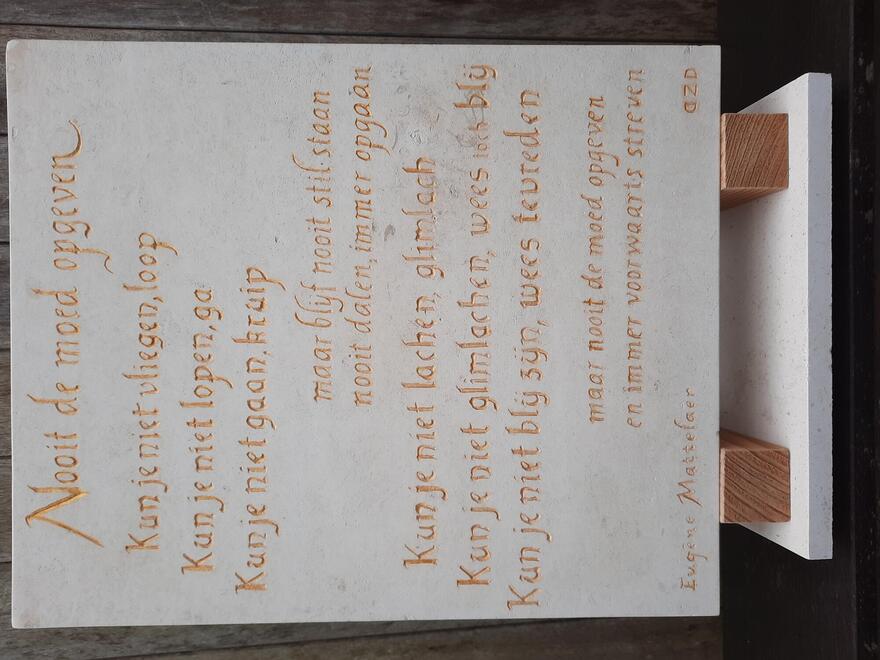 Nooit de moed opgeven
Kun je niet vliegen, loop
Kun je niet lopen, ga
Kun je niet gaan, kruip
maar blijf nooit stil staan
nooit dalen, immer opgaan
Kun je niet lachen, glimlach
Kun je niet glimlachen, wees toch blij
Kun je niet blij zijn, wees tevreden
maar nooit de moed opgeven
en immer voorwaarts streven
Eugène Mattelaer